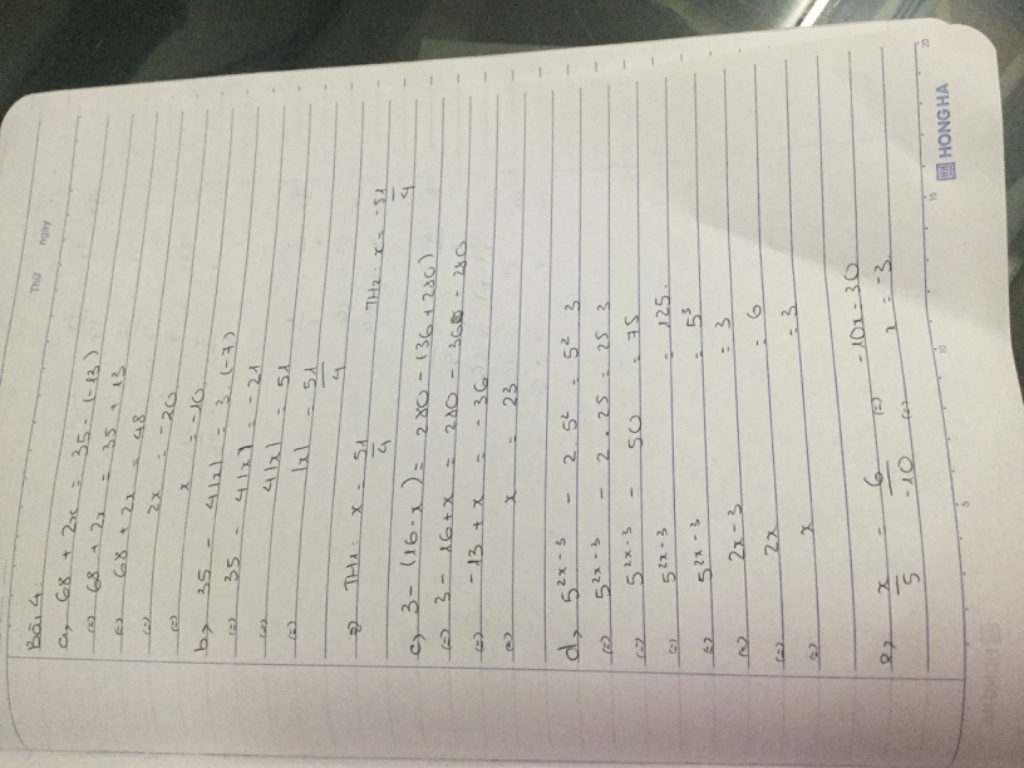 Thứ ngày
Bài 4:
a, 68 + 2x = 35 - (-13)
(=) 68 + 2x = 35 + 13
(=) 68 + 2x = 48
(=) 2x = -20
(=) x = -10
b, 35 - 4|x| = 3.(-7)
(=) 35 - 4|x| = -21
(=) 4|x| = 51
(=) |x| = 51/4
=) TH1: x = 51/4 TH2: x = -51/4
c, 3 - (16 - x) = 280 - (36 + 280)
(=) 3 - 16 + x = 280 - 36 - 280
(=) -13 + x = -36
(=) x = 23
d, 5^{2x-3} - 2.5² = 5².3
(=) 5^{2x-3} - 2.25 = 25.3
(=) 5^{2x-3} - 50 = 75
(=) 5^{2x-3} = 125.
(=) 5^{2x-3} = 5³
(=) 2x-3 = 3
(=) 2x = 6
(=) x = 3
e, x/5 = 6/-10 (=) -10x = 30
(=) x = -3
5 10 15 20
HONG HA